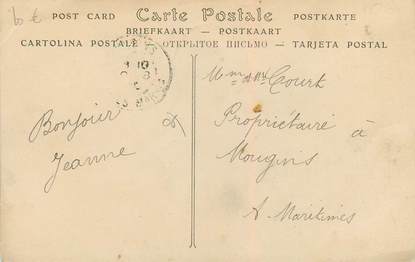 POST CARD Carte Postale POSTKARTE
BRIEFKAART - POSTKAART
CARTOLINA POSTALE - ОТКРЫТОЕ ПИСЬМО - TARJETA POSTAL
Bonjour
Jeanne
Court
Propriétaire à
Mougins
A. Maritimes